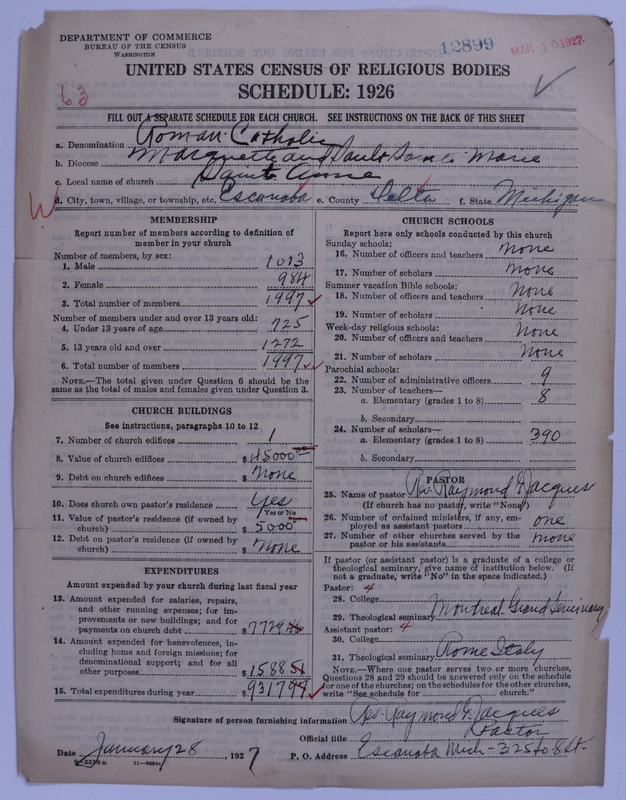 DEPARTMENT OF COMMERCE
BUREAU OF THE CENSUS
WASHINGTON
12899
MAR 10 1927
UNITED STATES CENSUS OF RELIGIOUS BODIES
SCHEDULE: 1926
63
FILL OUT A SEPARATE SCHEDULE FOR EACH CHURCH. SEE INSTRUCTIONS ON THE BACK OF THIS SHEET
a. Denomination Roman Catholic
b. Diocese Marquette and Sault Sainte Marie
c. Local name of church Saint Anne
d. City, town, village, or township, etc. Escanaba e. County Delta f. State Michigan
MEMBERSHIP
Report number of members according to definition of
member in your church
Number of members, by sex:
1. Male 1013
2. Female 984
3. Total number of members 1997
Number of members under and over 13 years old:
4. Under 13 years of age 725
5. 13 years old and over 1272
6. Total number of members 1997
NOTE.—The total given under Question 6 should be the
same as the total of males and females given under Question 3.
CHURCH BUILDINGS
See instructions, paragraphs 10 to 12
7. Number of church edifices 1
8. Value of church edifices $ 45000
9. Debt on church edifices $ None
10. Does church own pastor's residence Yes
Yes or No
11. Value of pastor's residence (if owned by
church) $ 5000
12. Debt on pastor's residence (if owned by
church) $ None
EXPENDITURES
Amount expended by your church during last fiscal year
13. Amount expended for salaries, repairs,
and other running expenses; for im-
provements or new buildings; and for
payments on church debt $ 7729
14. Amount expended for benevolences, in-
cluding home and foreign missions; for
denominational support; and for all
other purposes $ 1588
15. Total expenditures during year $ 9317
CHURCH SCHOOLS
Report here only schools conducted by this church
Sunday schools:
16. Number of officers and teachers None
17. Number of scholars None
Summer vacation Bible schools:
18. Number of officers and teachers None
19. Number of scholars None
Week-day religious schools:
20. Number of officers and teachers None
21. Number of scholars None
Parochial schools:
22. Number of administrative officers 9
23. Number of teachers—
a. Elementary (grades 1 to 8) 8
b. Secondary
24. Number of scholars—
a. Elementary (grades 1 to 8) 390
b. Secondary
PASTOR
25. Name of pastor Rev. Raymond G. Jacques
(If church has no pastor, write "None")
26. Number of ordained ministers, if any, em-
ployed as assistant pastors one
27. Number of other churches served by the
pastor or his assistants none
If pastor (or assistant pastor) is a graduate of a college or
theological seminary, give name of institution below. (If
not a graduate, write "No" in the space indicated.)
Pastor: 4
28. College
29. Theological seminary Montreal Grand Seminary
Assistant pastor: 4
30. College
31. Theological seminary Rome Italy
NOTE.—Where one pastor serves two or more churches,
Questions 28 and 29 should be answered only on the schedule
for one of the churches; on the schedules for the other churches,
write "See schedule for church."
Signature of person furnishing information Rev. Raymond G. Jacques
Official title Pastor
Date January 28, 1927 P. O. Address Escanaba Mich - 325 So 8 St.